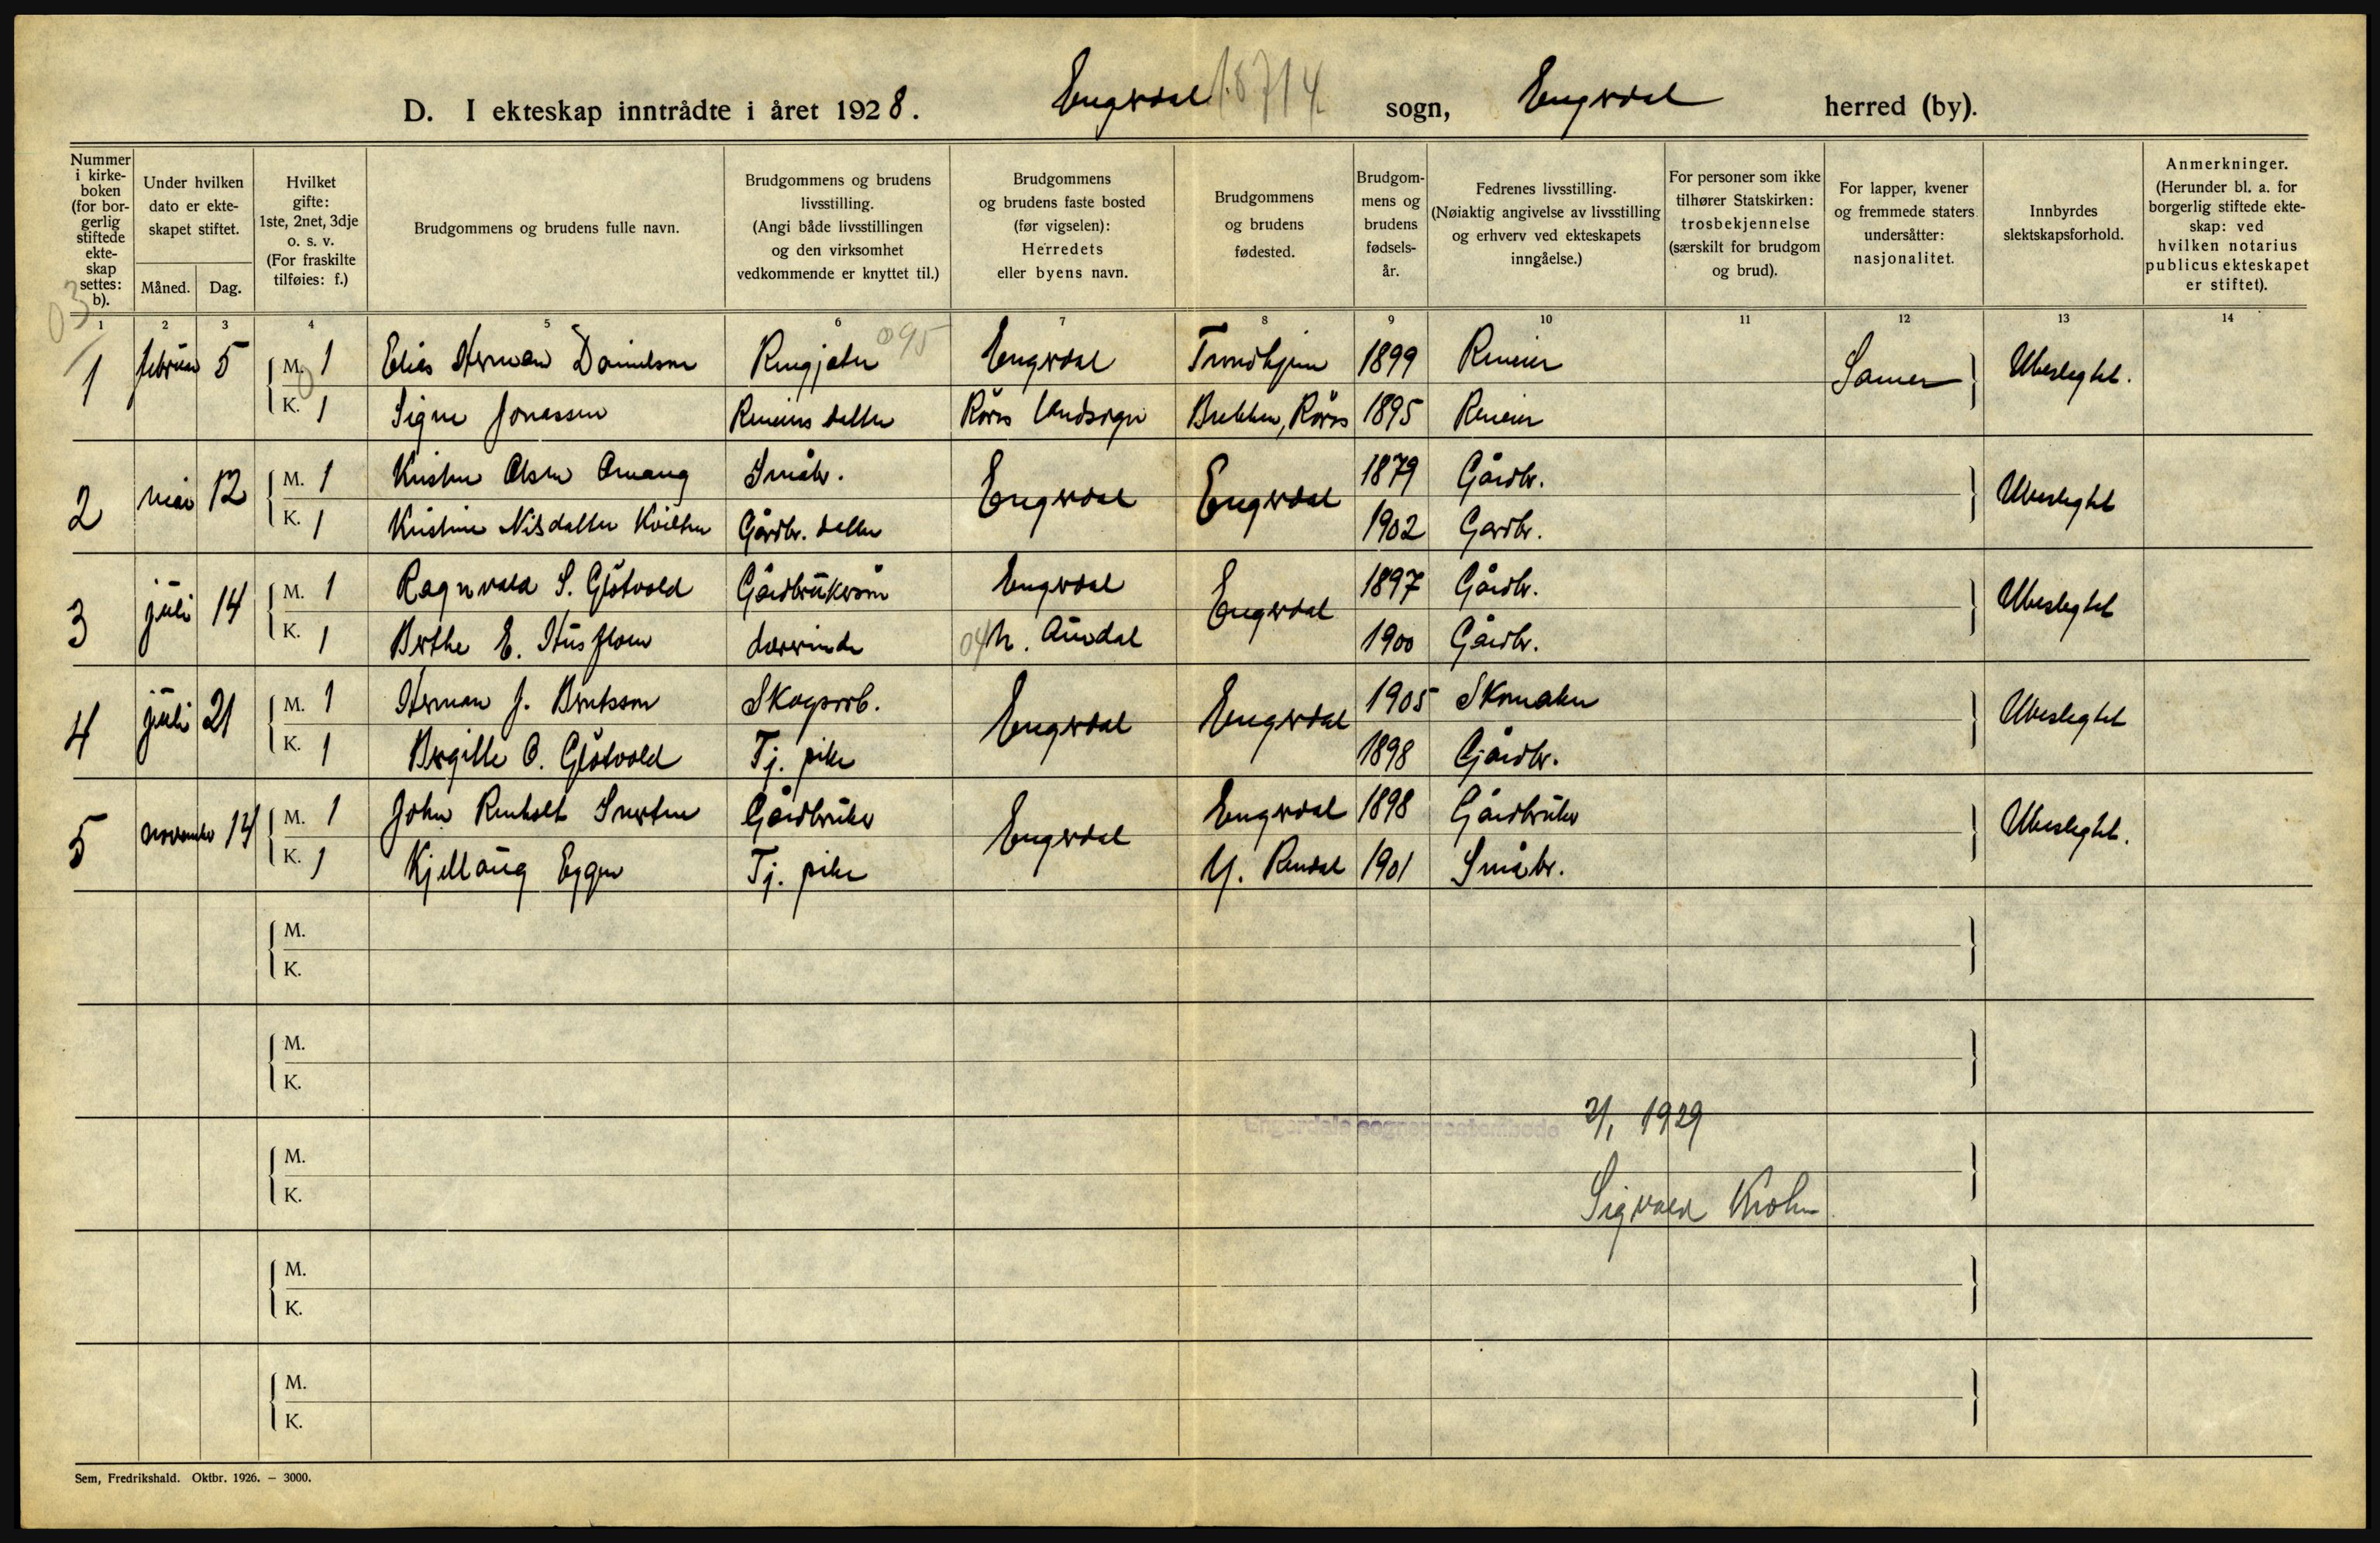 D. I ekteskap inntrådte i året 1928. Engerdal 18714 sogn, Engerdal herred (by).
Nummer i kirkeboken (for borgerlig stiftede ekteskap settes: b).
Under hvilken dato er ekteskapet stiftet.
Måned. Dag.
Hvilket gifte: 1ste, 2net, 3dje o. s. v. (For fraskilte tilføies: f.)
Brudgommens og brudens fulle navn.
Brudgommens og brudens livsstilling. (Angi både livsstillingen og den virksomhet vedkommende er knyttet til.)
Brudgommens og brudens faste bosted (før vigselen): Herredets eller byens navn.
Brudgommens og brudens fødested.
Brudgommens og brudens fødselsår.
Fedrenes livsstilling. (Nøiaktig angivelse av livsstilling og erhverv ved ekteskapets inngåelse.)
For personer som ikke tilhører Statskirken: trosbekjennelse (særskilt for brudgom og brud).
For lapper, kvener og fremmede staters undersåtter: nasjonalitet.
Innbyrdes slektskapsforhold.
Anmerkninger. (Herunder bl. a. for borgerlig stiftede ekteskap: ved hvilken notarius publicus ekteskapet er stiftet).
03
1 2 3 4 5 6 7 8 9 10 11 12 13 14
095
1 februar 5 M. 1 Elias Herman Danielsen Rengjeter Engerdal Trondhjem 1899 Reneier Samer Ubeslegtet.
0
K. 1 Signe Jonassen Reneiers datter Røros landsogn Brekken, Røros 1895 Reneier
2 mai 12 M. 1 Kristen Olsen Omang Småbr. Engerdal Engerdal 1879 Gårdbr. Ubeslegtet
K. 1 Kristine Nilsdatter Kvilten Gårdbr. datter 1902 Gardbr.
3 juli 14 M. 1 Ragnvald S. Gløtvold Gårdbrukersøn Engerdal Engerdal 1897 Gårdbr. Ubeslegtet
K. 1 Berthe E. Husfloen Lærerinde 04 N. Aurdal 1900 Gårdbr.
4 juli 21 M. 1 Herman J. Berntsson Skogsarb. Engerdal Engerdal 1905 Skomaker Ubeslegtet
K. 1 Bergitte O. Gløtvold Tj. pike 1898 Gjårdbr.
5 november 14 M. 1 John Renholt Sverten Gårdbruker Engerdal Engerdal 1898 Gårdbruker Ubeslegtet.
K. 1 Kjellaug Eggen Tj. pike Y. Rendal 1901 Småbr.
M.
K.
M.
K.
2/1 1929
M.
K.
Sigvald Krohn
M.
K.
M.
K.
Sem, Fredrikshald. Oktbr. 1926. — 3000.